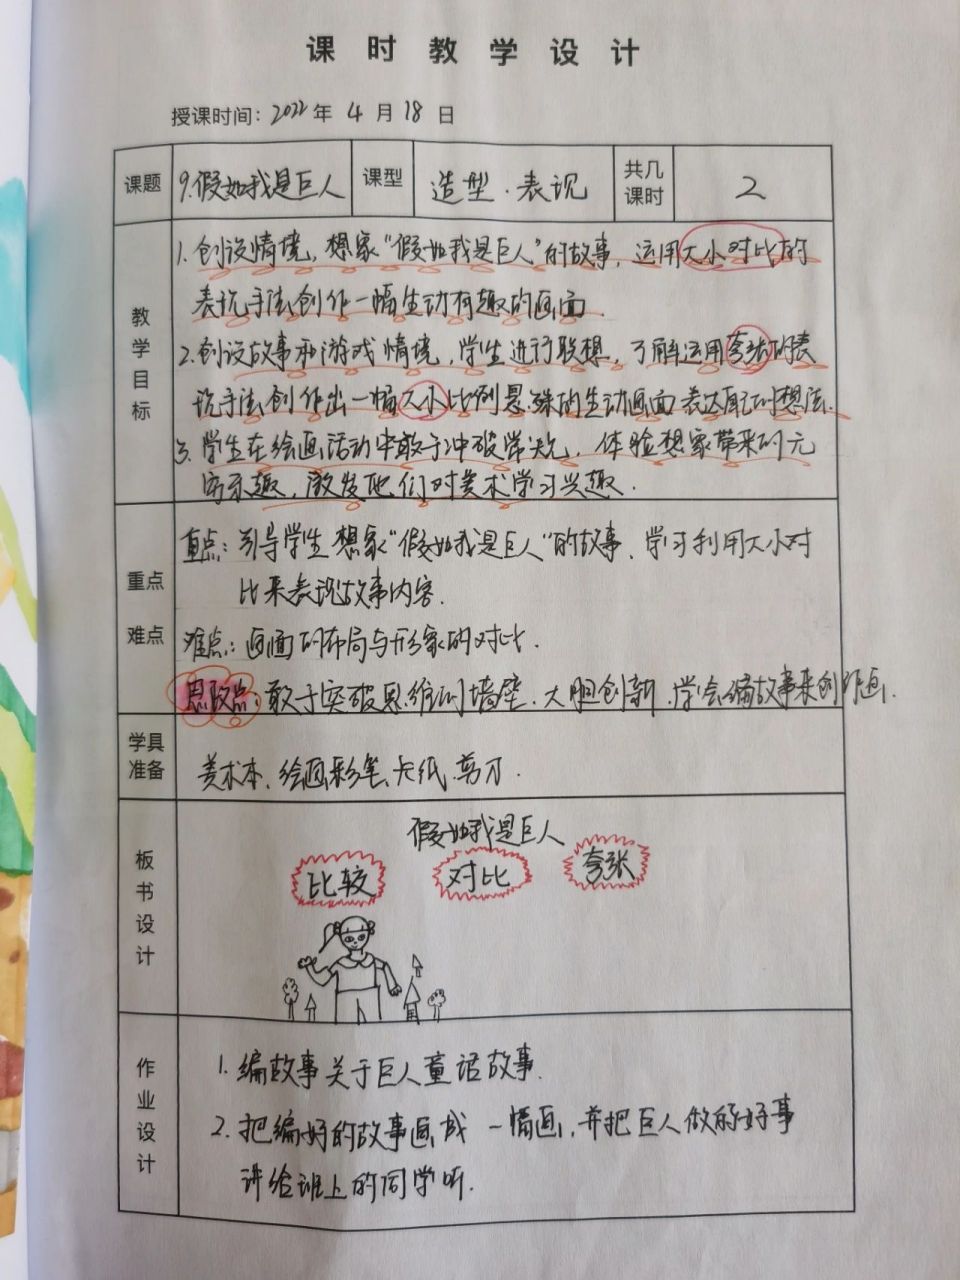 课时教学设计
授课时间：2022年4月18日
课题 9.假如我是巨人 课型 造型·表现 共几课时 2
教学目标
1.创设情境，想象“假如我是巨人”的故事，运用大小对比的
表现手法创作一幅生动有趣的画面.
2.创设故事和游戏情境，学生进行联想，了解运用夸张的表
现手法创作出一幅大小比例悬殊的生动画面表达自己的想法.
3.学生在绘画活动中敢于冲破常规，体验想象带来的无
穷乐趣，激发他们对美术学习兴趣.
重点
难点
重点：引导学生想象“假如我是巨人”的故事、学习利用大小对
比来表现故事内容.
难点：画面的布局与形象的对比.
思政点：敢于突破思维的墙壁、大胆创新、学会编故事来创作画.
学具准备
美术本、绘画彩笔、卡纸、剪刀.
板书设计
假如我是巨人
比较 对比 夸张
作业设计
1.编故事关于巨人童话故事.
2.把编好的故事画成一幅画，并把巨人做的好事
讲给班上的同学听.